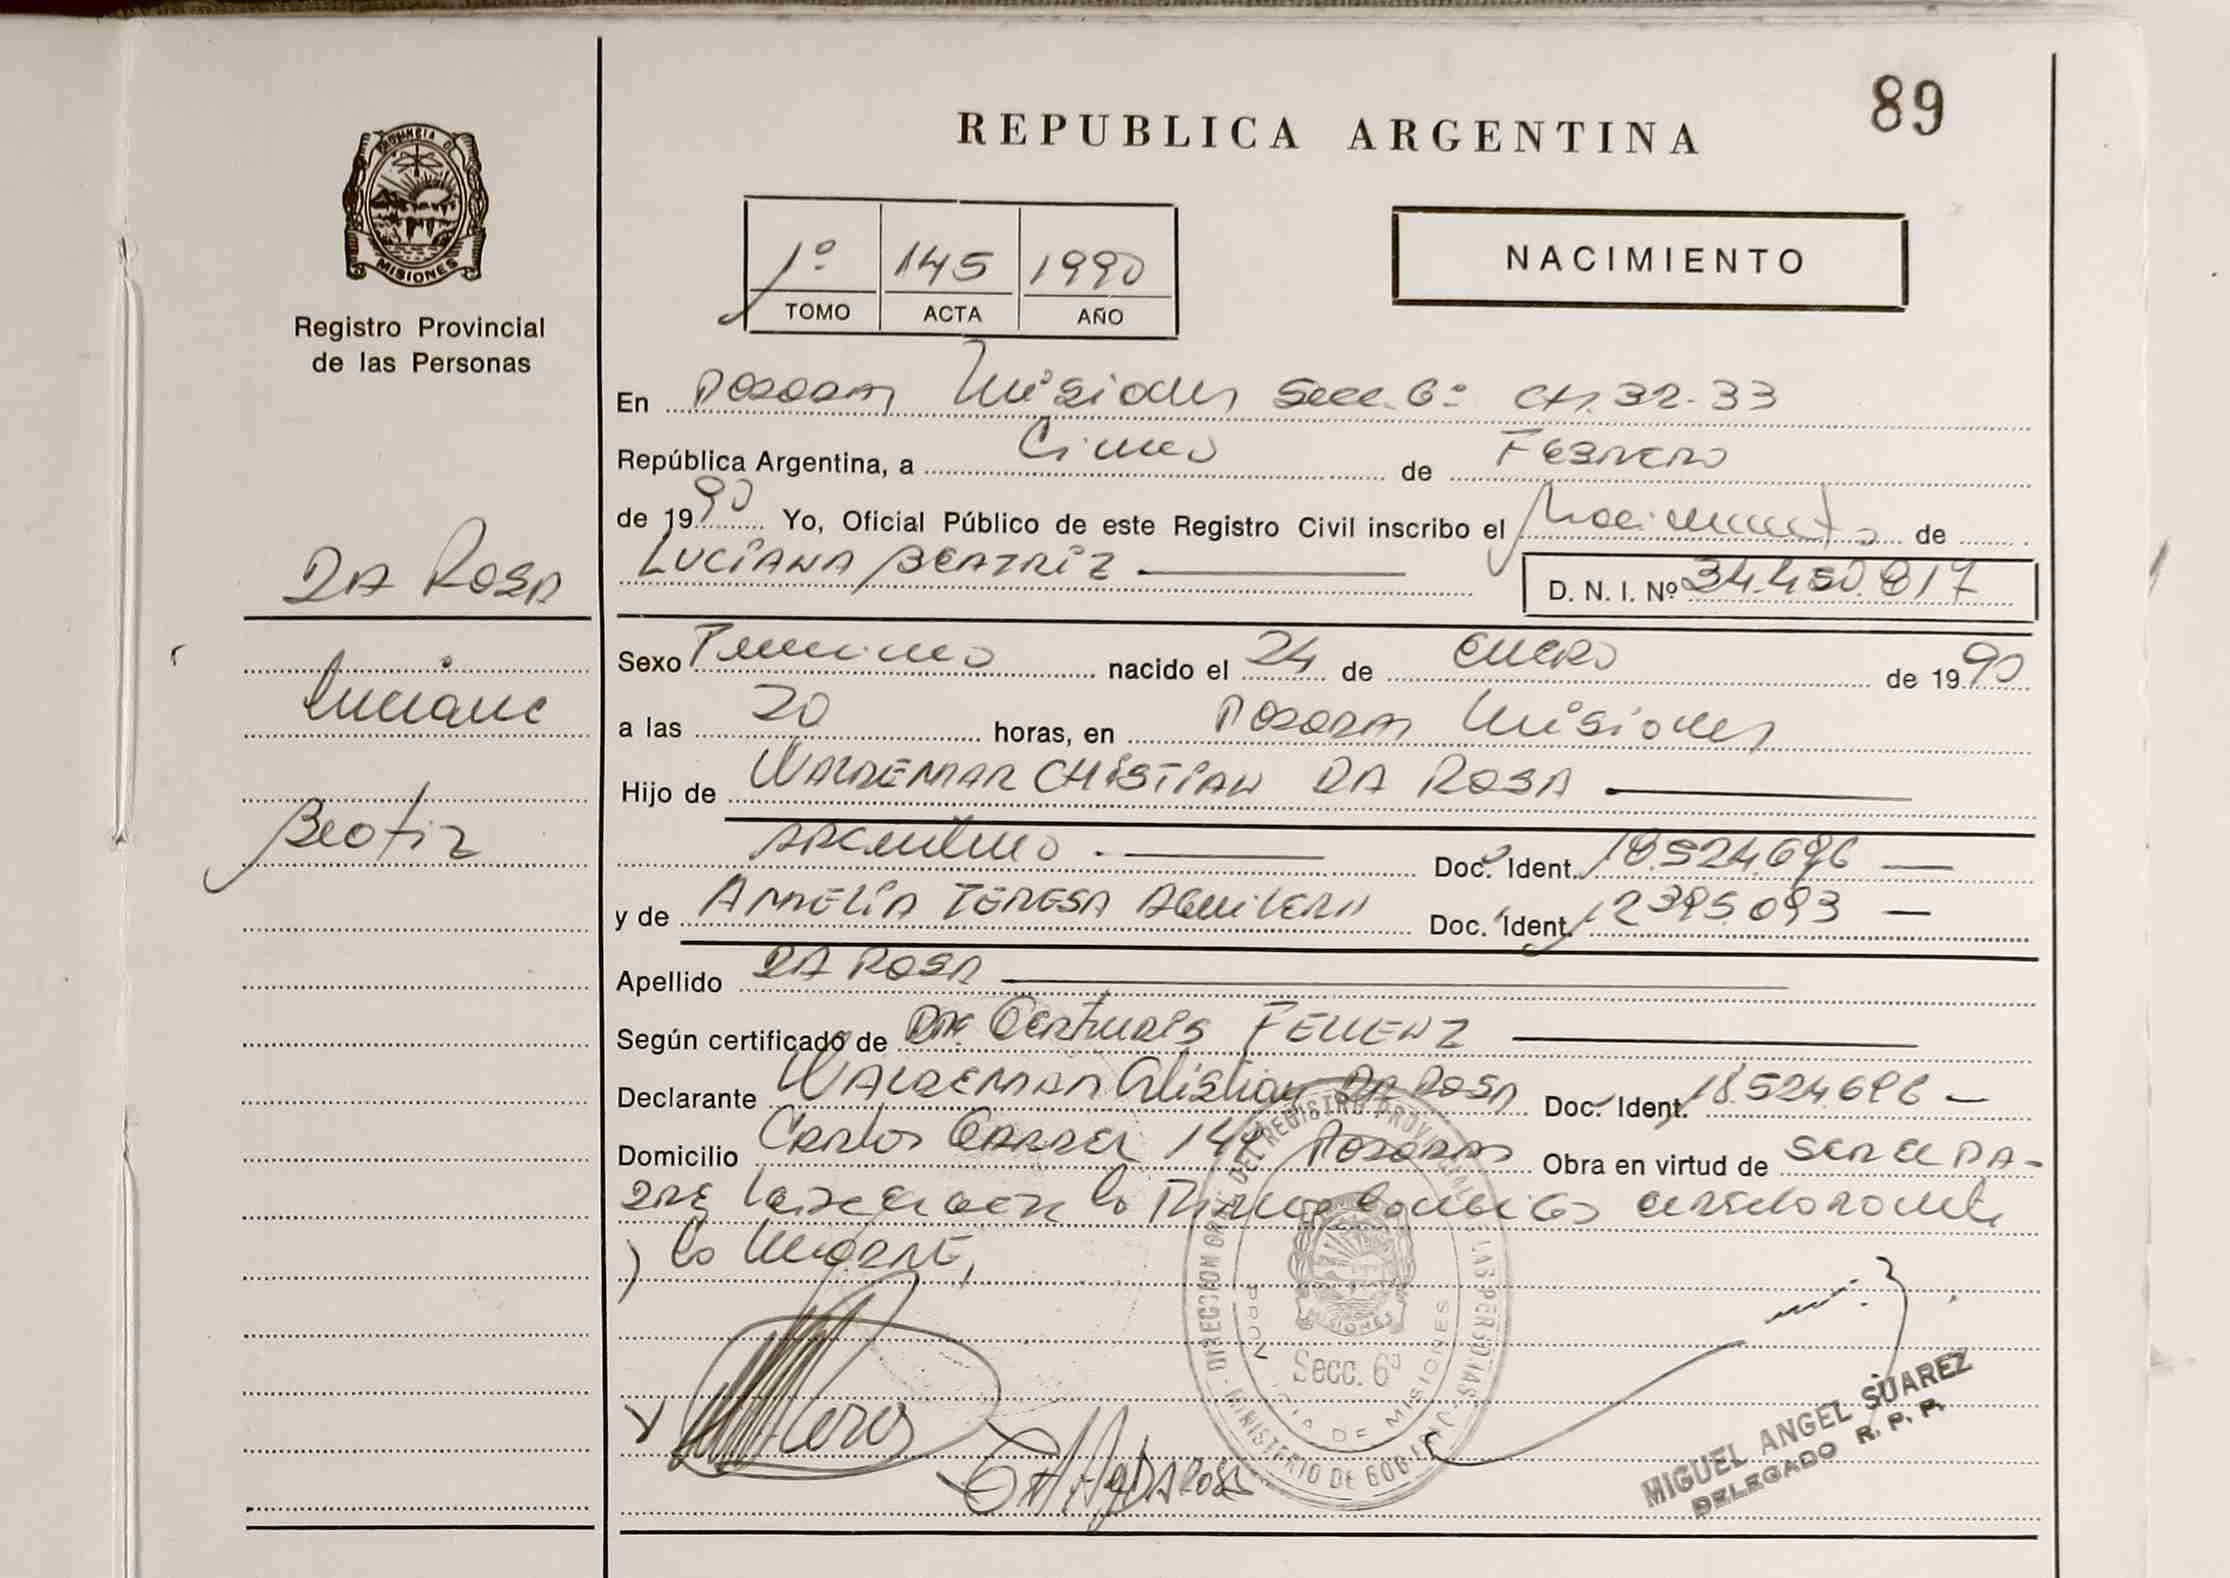 89
REPUBLICA ARGENTINA
PROVINCIA DE
MISIONES
Registro Provincial
de las Personas
1º 145 1990
TOMO ACTA AÑO
NACIMIENTO
En Posadas Misiones Secc. 6º CH. 32-33
República Argentina, a Cinco de Febrero
de 1990 Yo, Oficial Público de este Registro Civil inscribo el Nacimiento de
LUCIANA BEATRIZ
D. N. I. Nº 34.450.817
DA ROSA
Luciana
Beatriz
Sexo Femenino nacido el 24 de ENERO de 1990
a las 20 horas, en Posadas Misiones
Hijo de WALDEMAR CHISTIAN DA ROSA
ARGENTINO Doc. Ident. 18.524.696
y de AMELIA TERESA AGUILERA Doc. Ident. 12395.093
Apellido DA ROSA
Según certificado de FELLENZ
Declarante WALDEMAR Christian DA ROSA Doc. Ident. 18.524.696
Domicilio Carlos GARDEL Posadas Obra en virtud de SER EL PA-
DRE
y la MADRE,
DIRECCION GRAL. DEL REGISTRO PROVINCIAL DE LAS PERSONAS
MINISTERIO DE GOBIERNO
MISIONES
Secc. 6º
PROVINCIA DE MISIONES
DA ROSA
MIGUEL ANGEL SUAREZ
DELEGADO R. P. P.